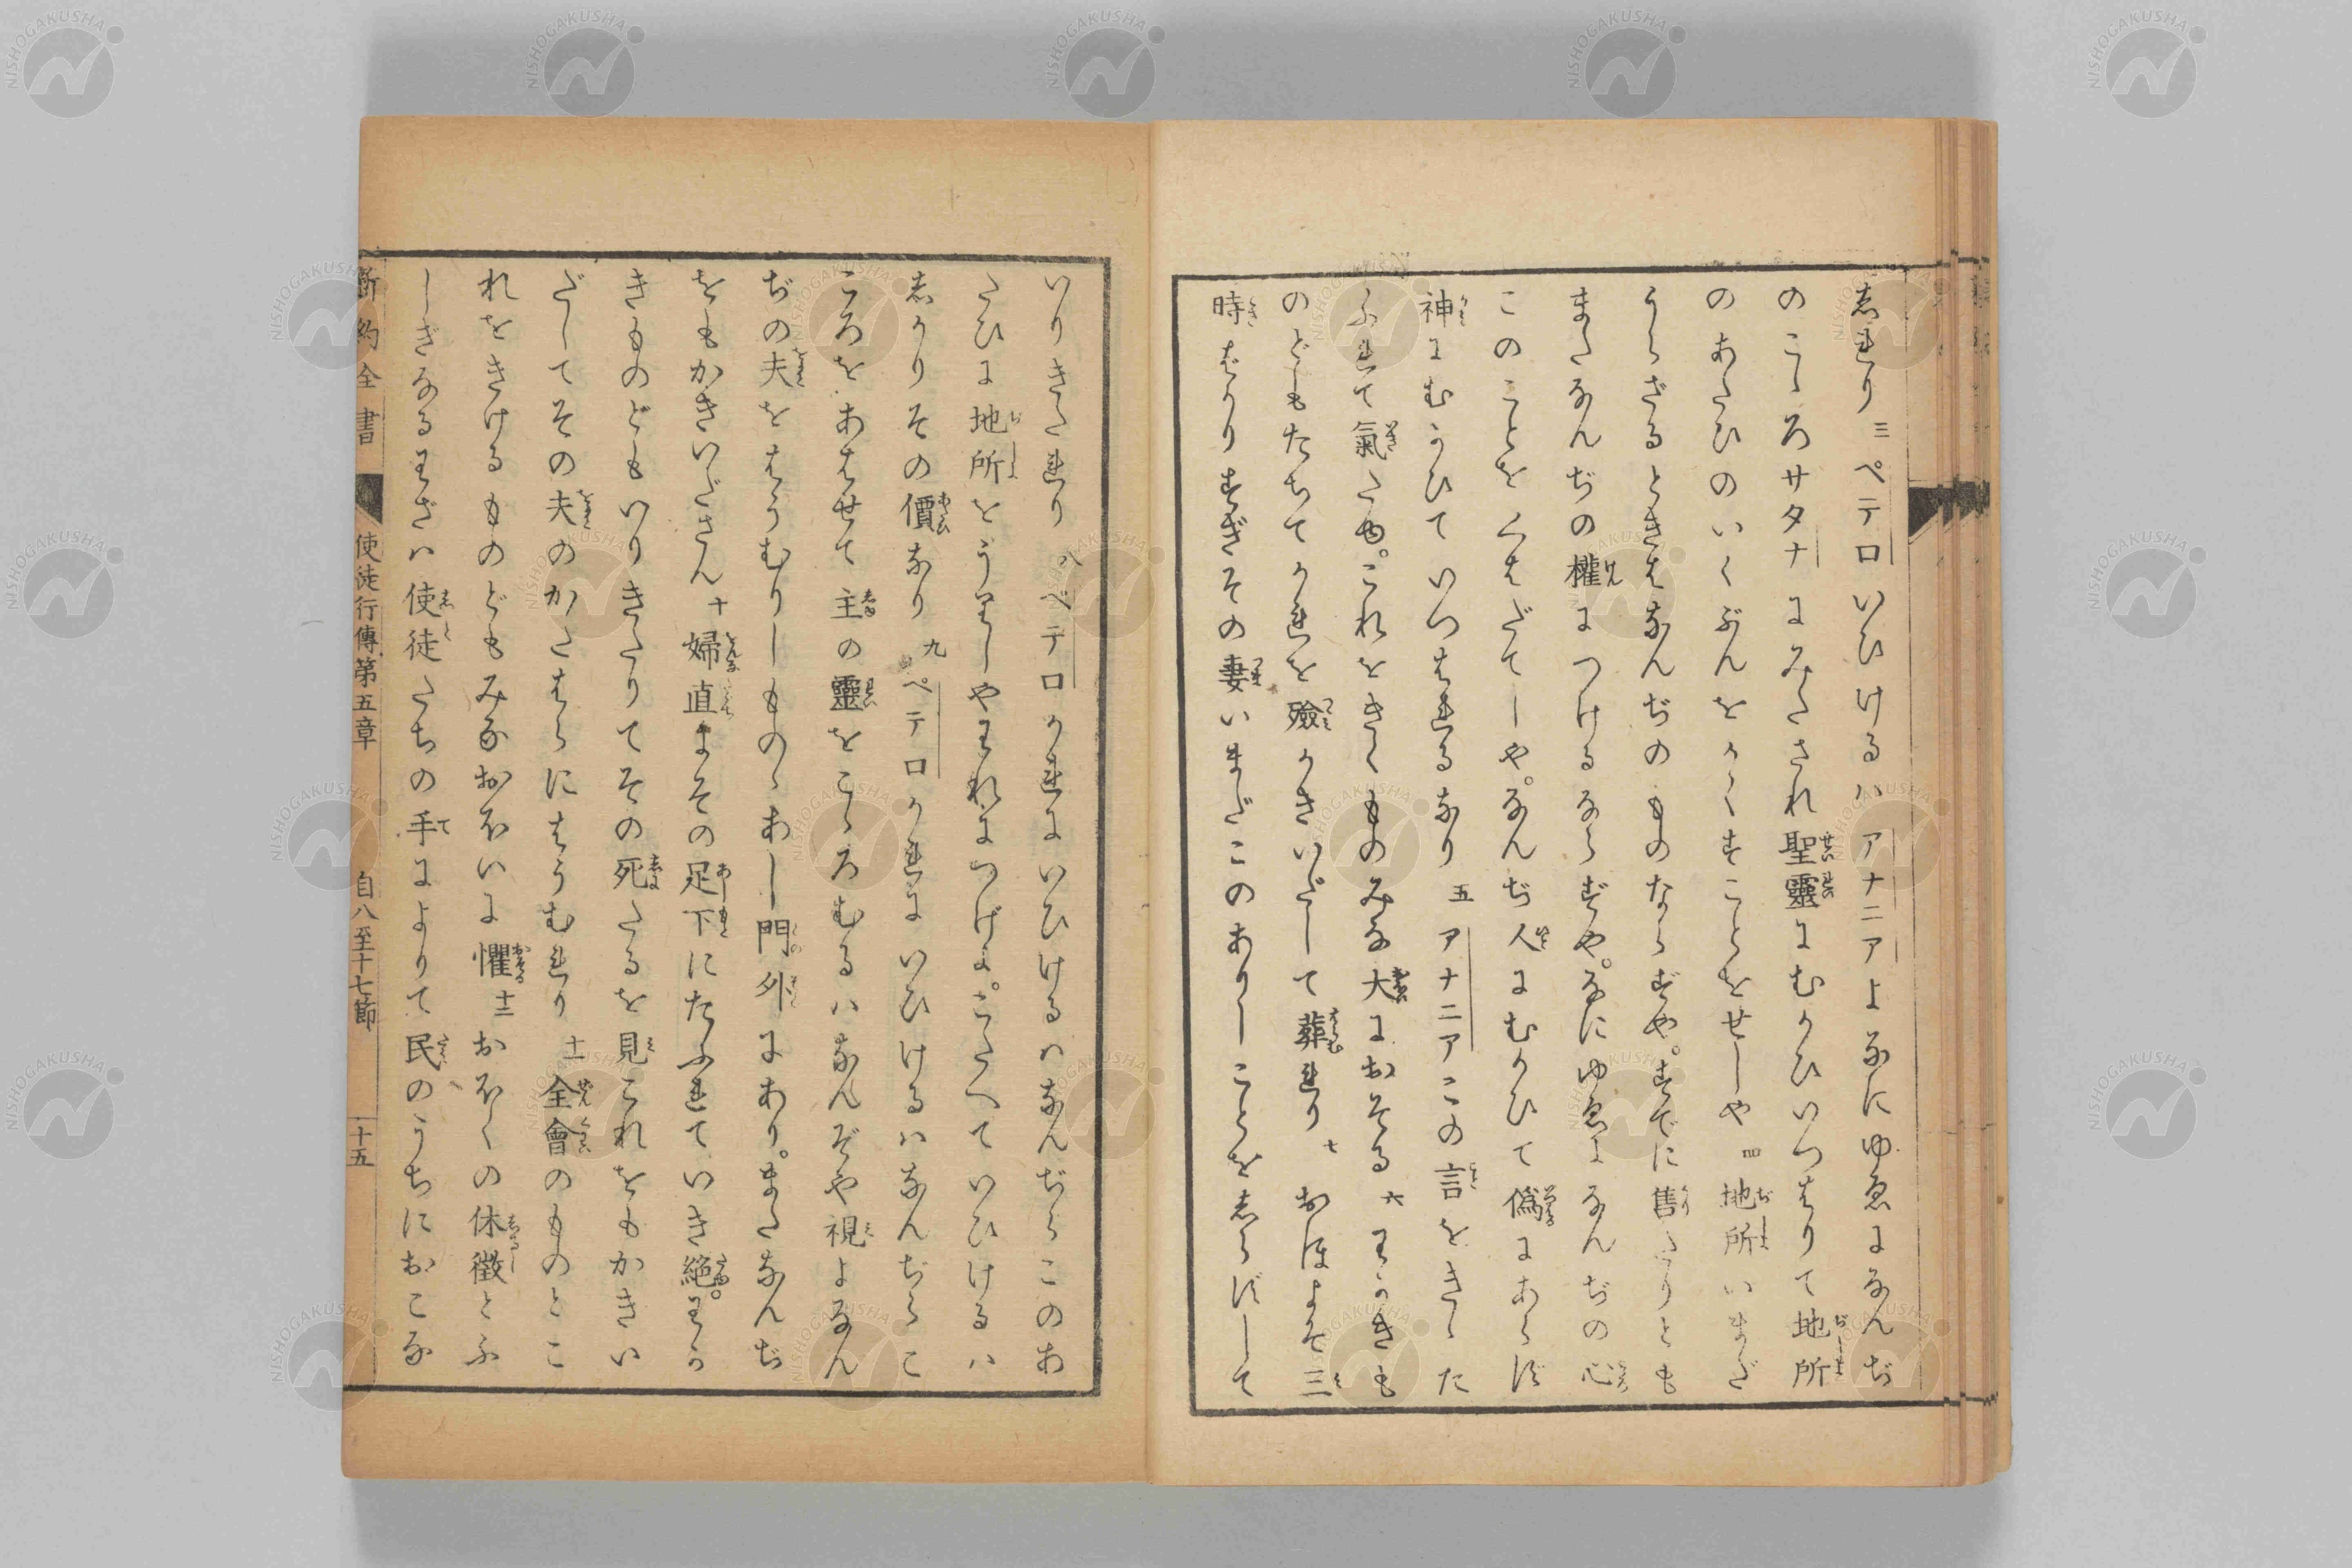 志れり 三 ペテロいひけるハアナニアよなにゆゑになんぢ
のこゝろサタナにみたされ聖靈にむかひいつはりて地所
のあたひのいくぶんをかくすことをせしや 四 地所いまだ
うらざるときはなんぢのものならずや。すでに售たりとも
またなんぢの權につけるならずや。なにゆゑになんぢの心
このことをくはだてしや。なんぢ人にむかひて僞にあらず
神にむかひていつはれるなり 五 アナニアこの言をきゝた
ふれて氣たゆ。これをきくものみな大におそる 六 わかきも
のどもたちてかれを殮かきいだして葬れり 七 おほよそ三
時ばかりすぎその妻いまだこのありしことを志らずして
いりきたれり 八 ペテロかれにいひけるハなんぢらこのあ
たひに地所をうりしやわれにつげよ。こたへていひけるハ
志かりその價なり 九 ペテロかれにいひけるハなんぢらこ
ころをあはせて主の靈をこゝろむるハなんぞや視よなん
ぢの夫をはうむりしものゝあし門外にあり。またなんぢ
をもかきいださん 十 婦直にその足下にたふれていき絶。わか
きものどもいりきたりてその死たるを見これをもかきい
だしてその夫のかたはらにはうむれり 十一 全會のものとこ
れをきけるものどもみなおほいに懼 十二 おほくの休徴とふ
しぎなるわざハ使徒たちの手によりて民のうちにおこな
新約全書 使徒行傳第五章 自八至十七節 十五